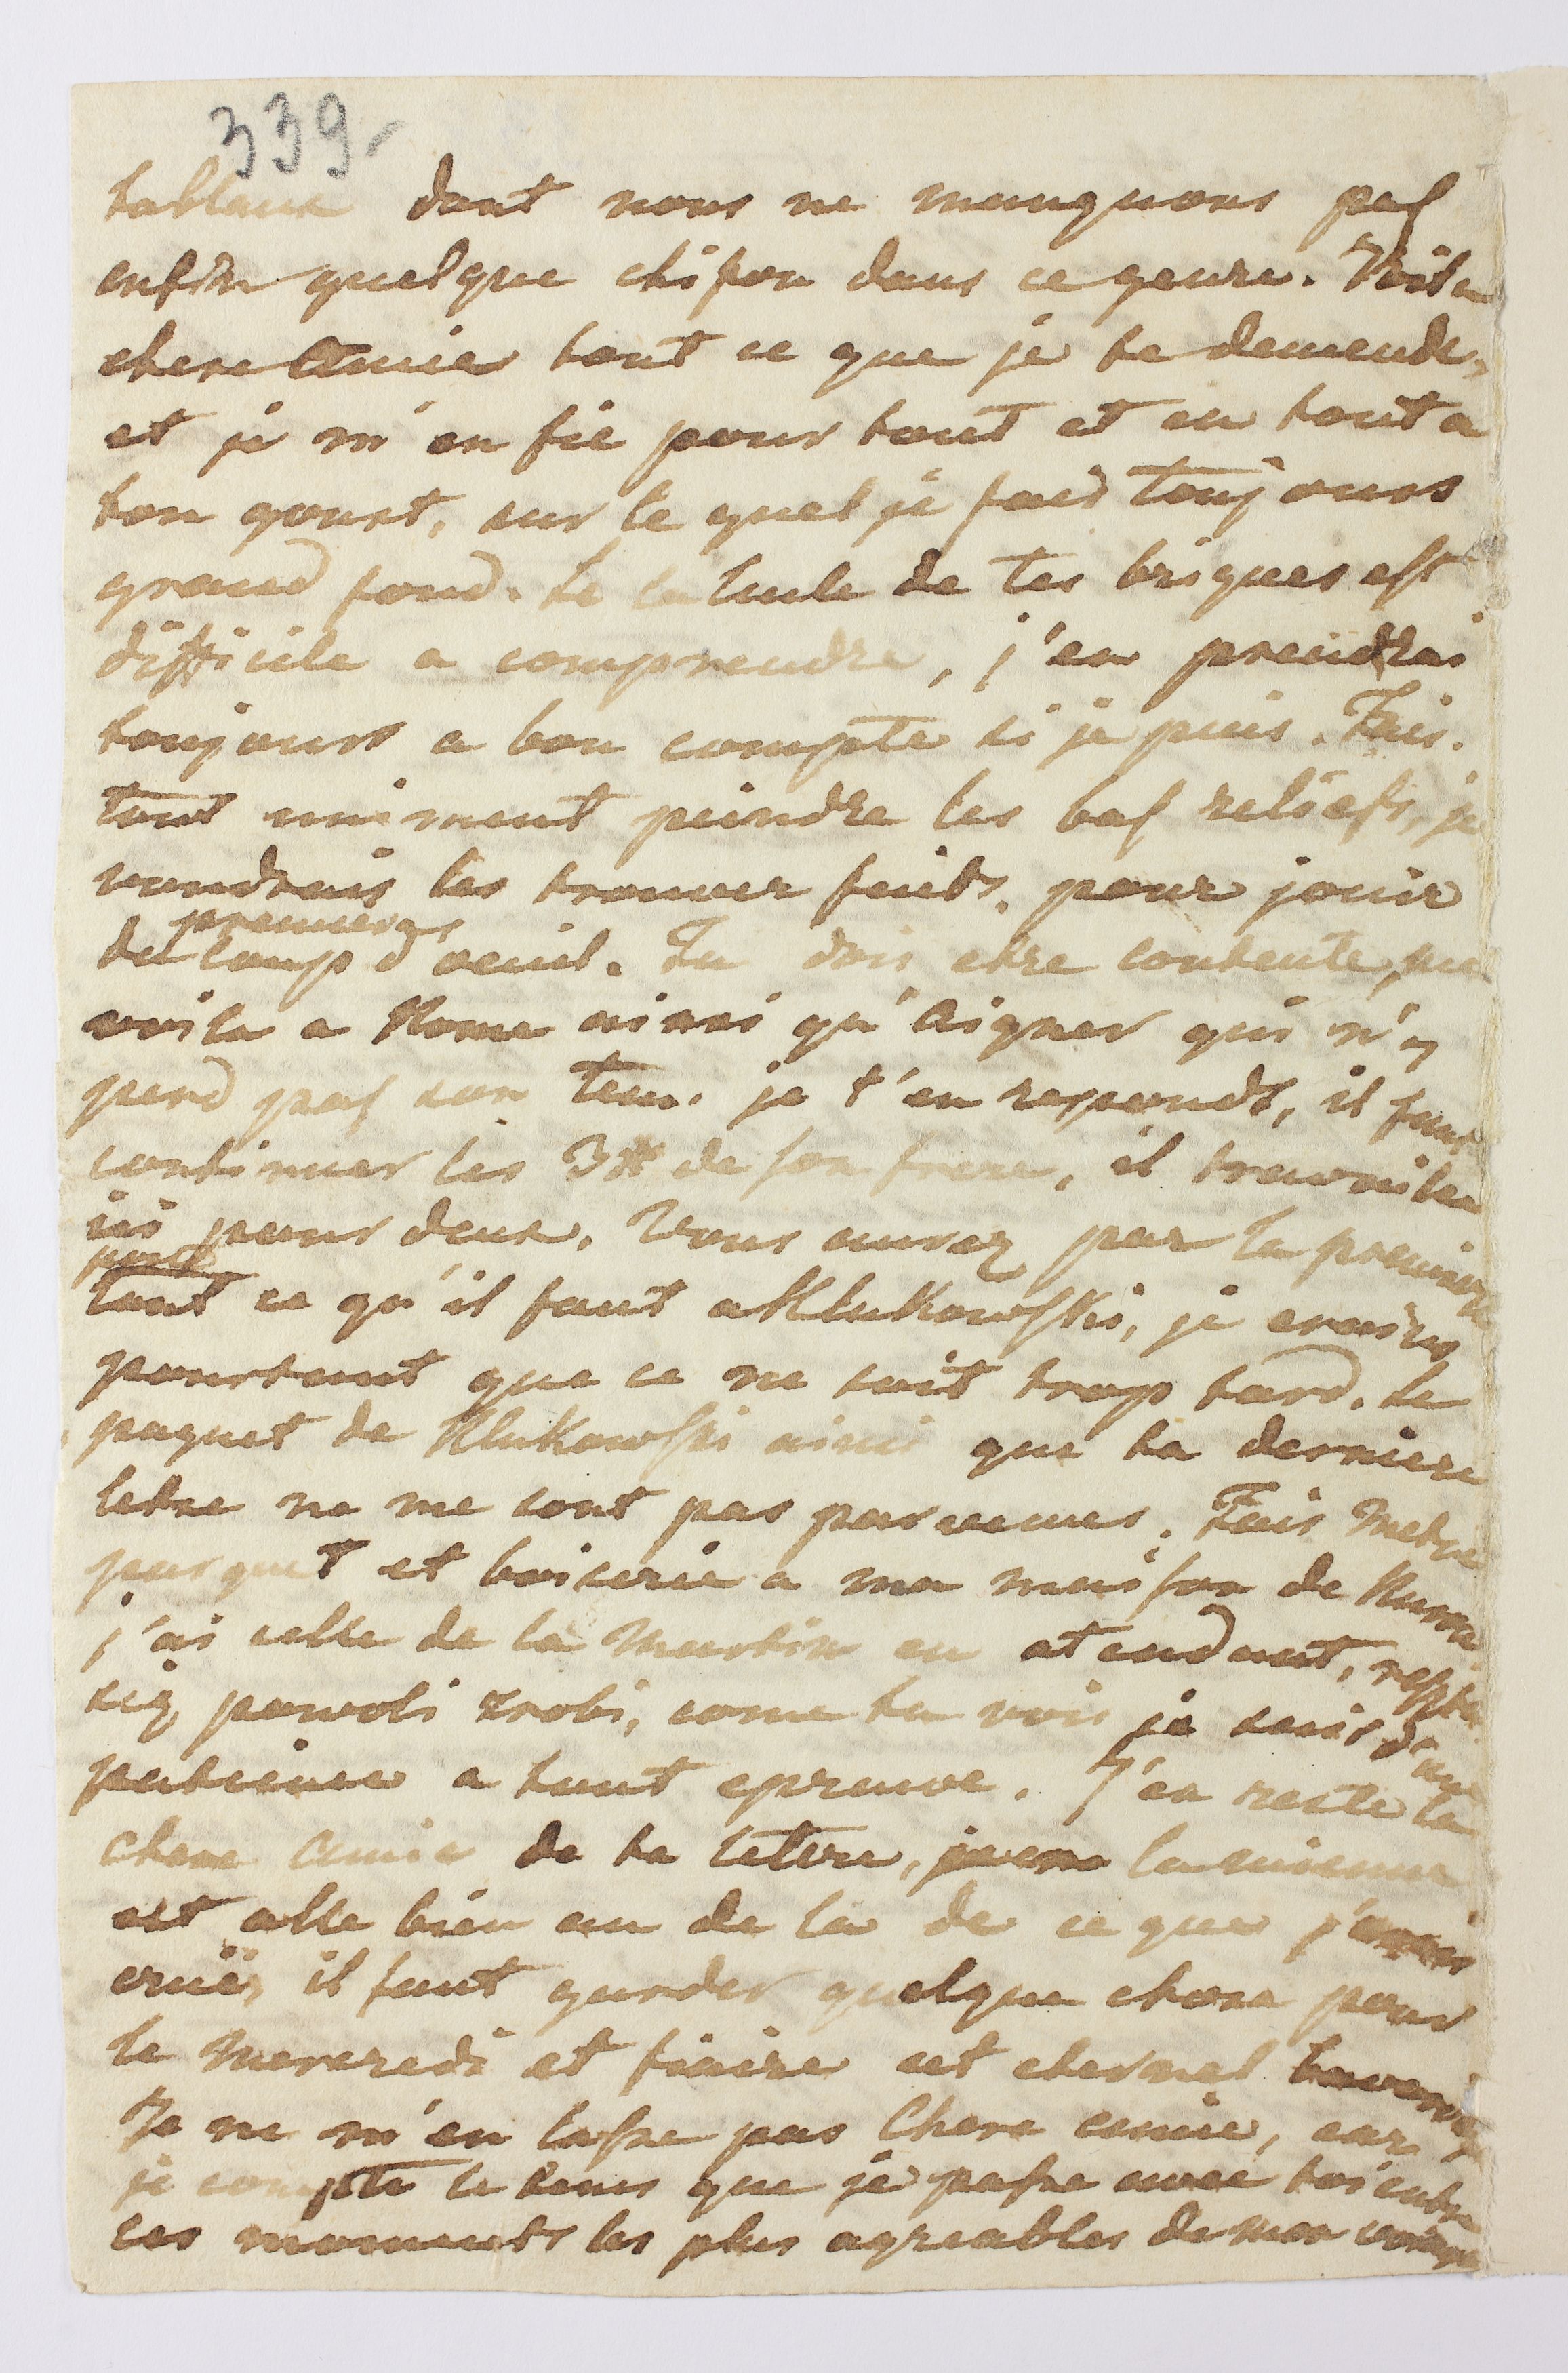 339
tablaux dont nous ne manquons pas
enfin quelque chifon dans ce genre. Voila
chere Amie tout ce que je te demende,
et je m'en fie pour tout et en tout a
ton goust, sur le quel je fais toujours
grand fond. Le calcule de tes briques est
difficile a comprendre, j'en prendrai
toujours a bon compte si je puis. Fais
tout uniment peindre les bas reliefs, je
voudrais les trouver faits, pour jouir
premier
du coup d'oeuil. Tu dois etre contente, me
voila a Rome ainsi qu'Aigner qui n'y
perd pas son tem. je t'en reponds, il faut
continuer les 3# de son frere, il travaile
ici pour deux. Vous aurez par la premiere
poste
tout ce qu'il faut a Klukowski, je crains
pourtant que ce ne soit trop tard. Le
paquet de Klukowski ainsi que ta derniere
letre ne me sont pas parvenues. Fais metre
parquet et boiserie a ma maison de
j'ai celle de la Martin en atendant,
się powoli zrobi, come tu vois je suis d'une
patience a tout epreuve. J'en reste la
chere Amie de ta lettre, la mienne
est alle bien au de la de ce que j'avais
crue, il faut garder quelque chose pour
le Mercredi et finire cet eternel
Je ne m'en lasse pas Chere amie, car
je compte le tems que je passe avec toi entre
les moments les plus agreables de mon voiage